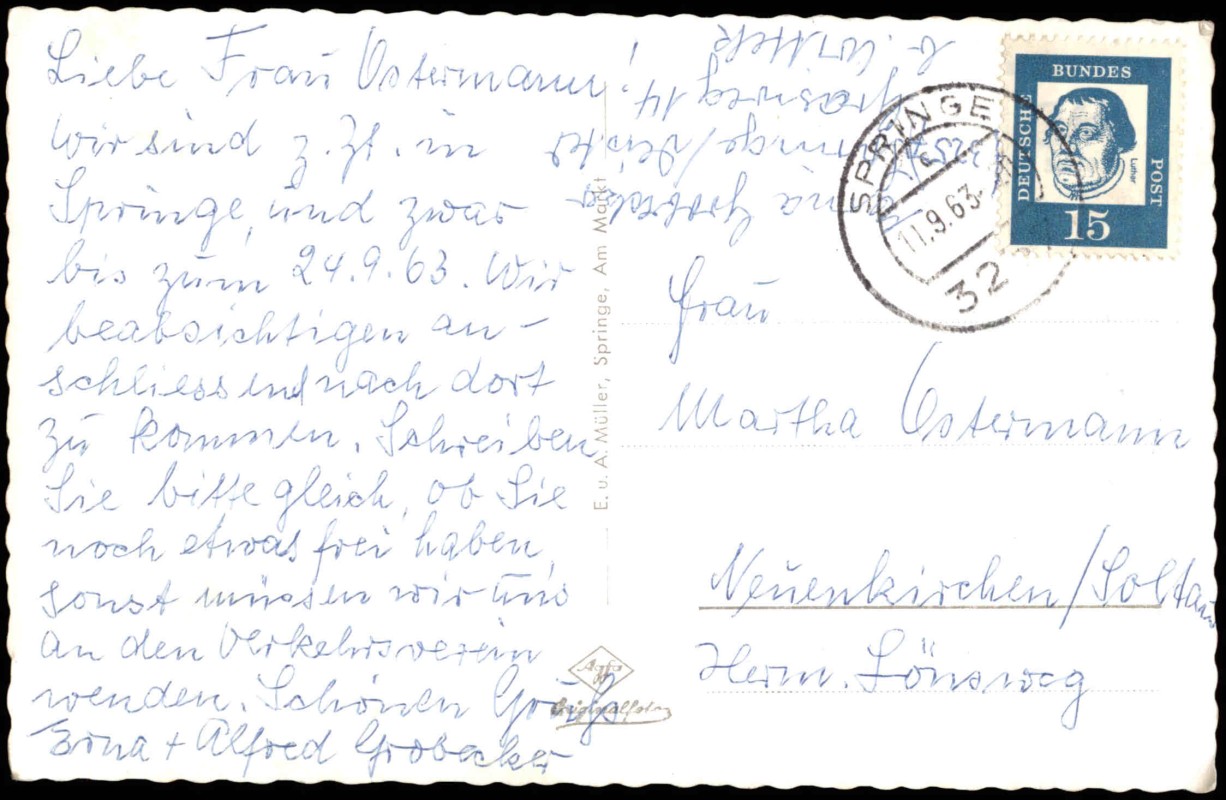 Liebe Frau Ostermann!
wir sind z. Zt. in
Springe, und zwar
bis zum 24.9.63. Wir
beabsichtigen an-
schliessend nach dort
zu kommen. Schreiben
Sie bitte gleich, ob Sie
noch etwas frei haben,
sonst müssen wir uns
an den Verkehrsverein
wenden. Schönen Gruß
Erna + Alfred Grobecker
E. u. A. Müller, Springe, Am Markt
Agfa
Originalfoto
Erna Grobecker
Springe/Deister
14
b.
SPRINGE
11.9.63
32
DEUTSCHE
BUNDES
POST
Luther
15
Frau
Martha Ostermann
Neuenkirchen/Soltau
Herm. Lönsweg